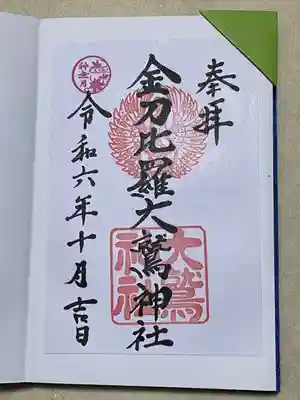 奉拝
金刀比羅大鷲神社
大鷲神社
令和六年十月吉日